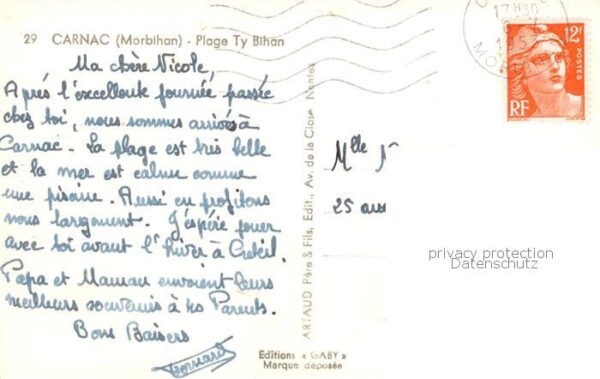 29 CARNAC (Morbihan) - Plage Ty Bihan
Ma chère Nicole,
Après l'excellente journée passée
chez toi, nous sommes arrivés à
Carnac. La plage est très belle
et la mer est calme comme
une piscine. Aussi en profitons
nous largement. J'espère jouer
avec toi avant l'hiver à Créteil.
Papa et Maman envoient leurs
meilleurs souvenirs à tes Parents.
Bons Baisers
Bernard
Editions « GABY »
Marque déposée
ARTAUD Père & Fils, Edit., Av. de la Close, Nantes
17H30
12F
POSTES
RF
Mlle N
25 aus
privacy protection
Datenschutz